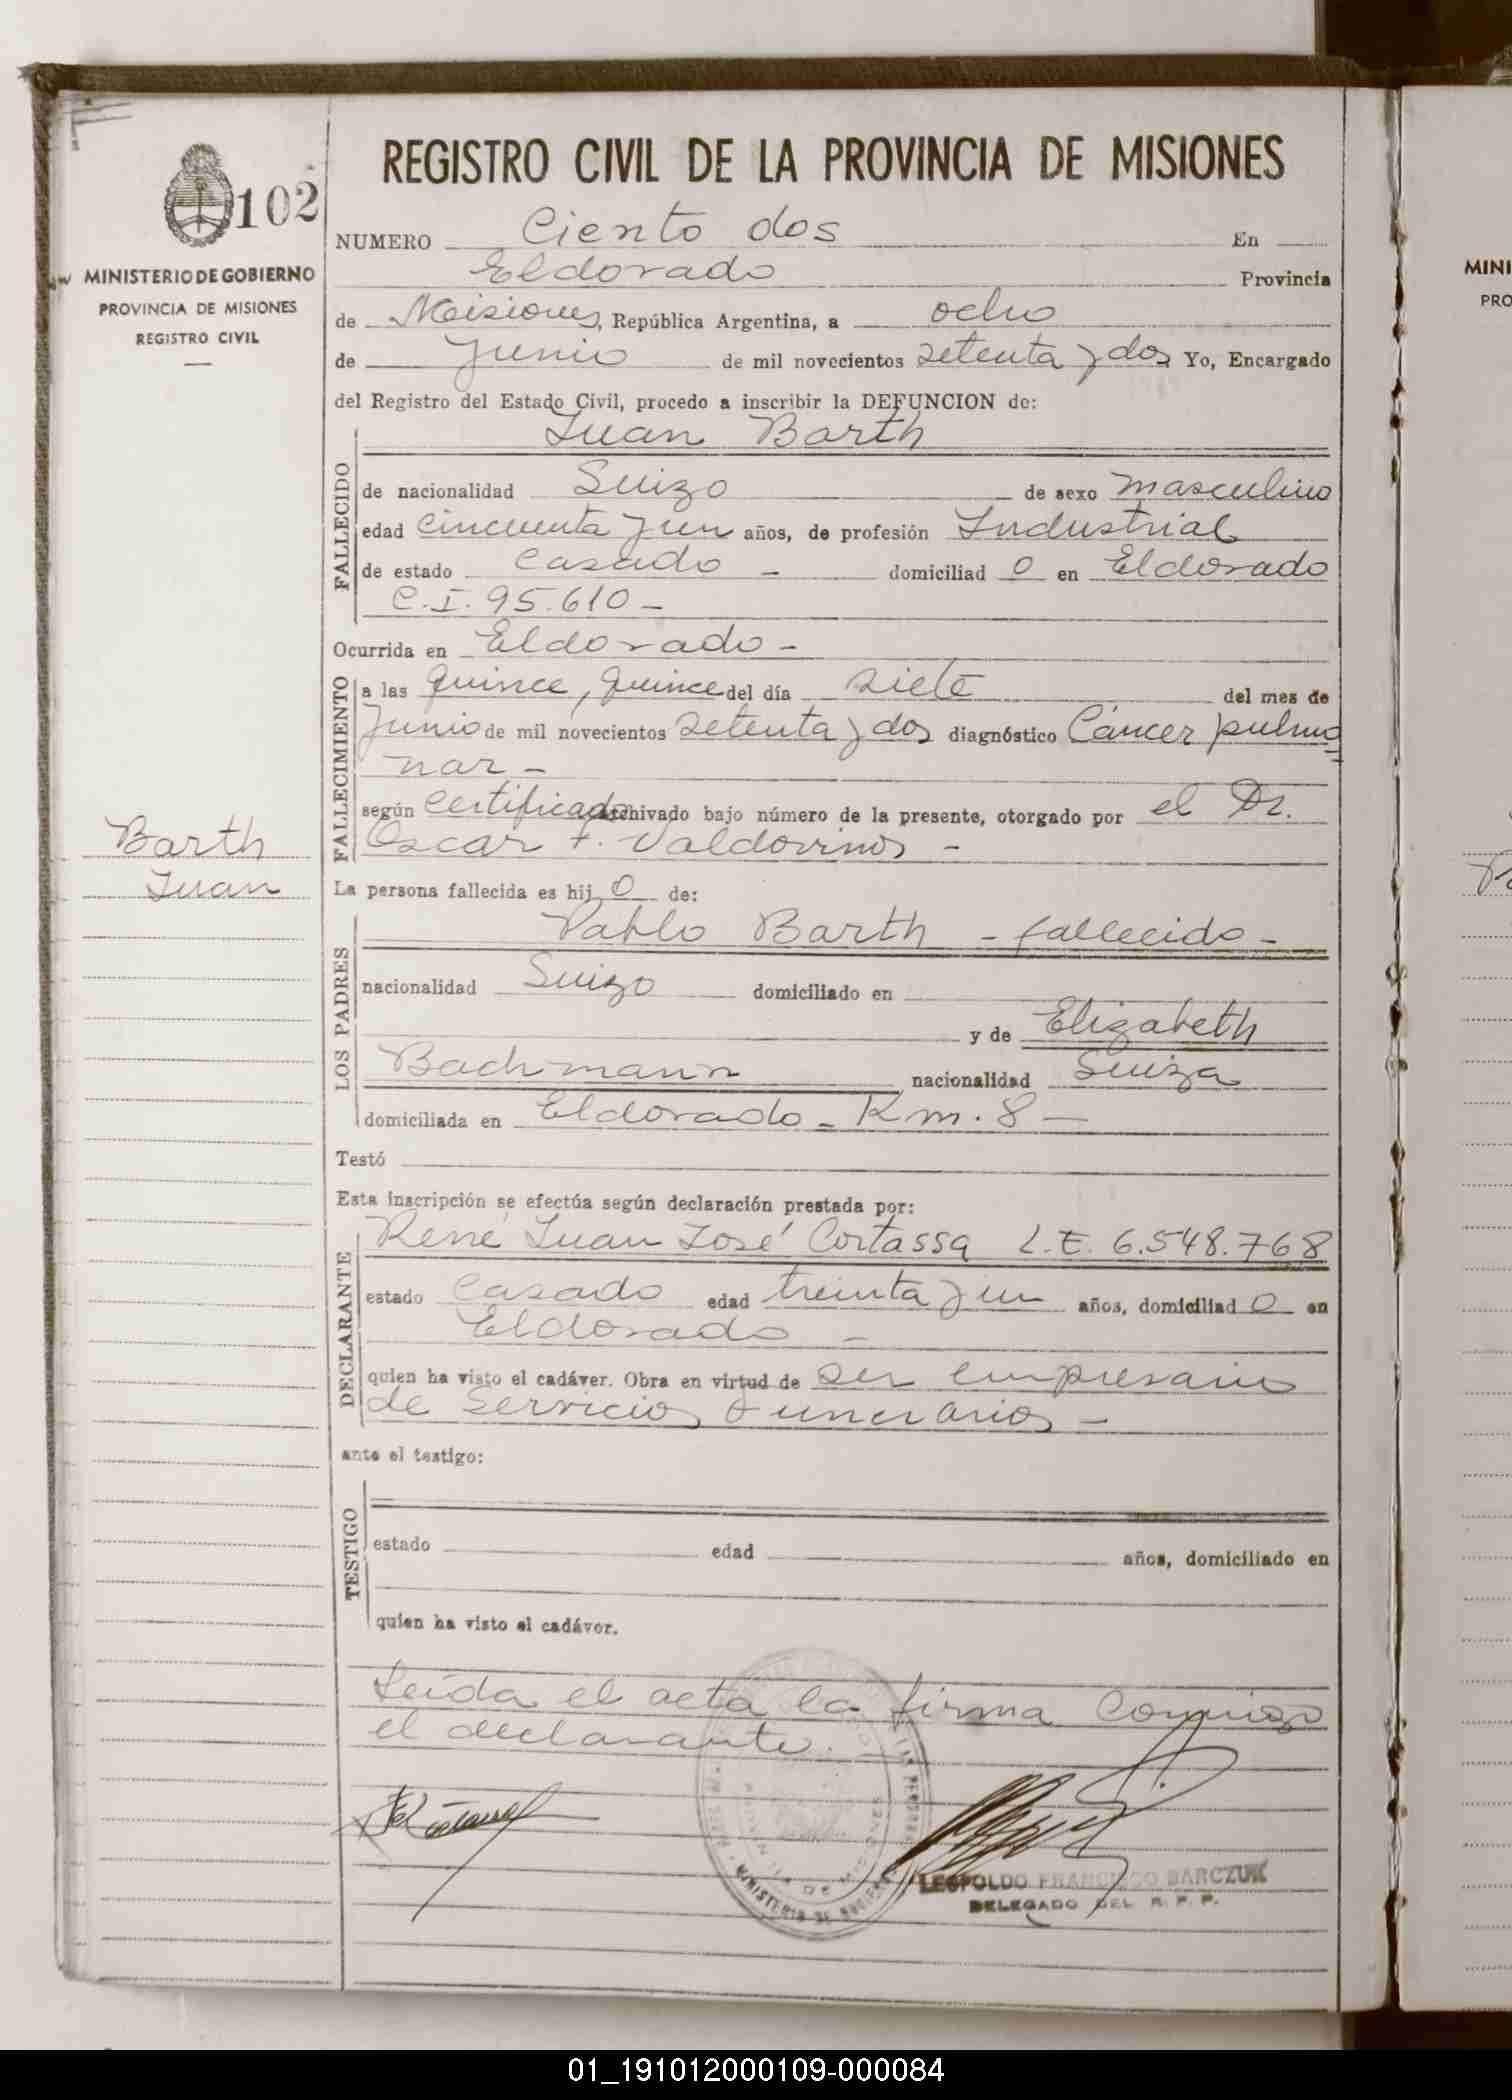 102
MINISTERIO DE GOBIERNO
PROVINCIA DE MISIONES
REGISTRO CIVIL
Barth
Juan
REGISTRO CIVIL DE LA PROVINCIA DE MISIONES
NUMERO Ciento dos En
Eldorado Provincia
de Misiones, República Argentina, a ocho
de Junio de mil novecientos setenta y dos Yo, Encargado
del Registro del Estado Civil, procedo a inscribir la DEFUNCION de:
Juan Barth
FALLECIDO
de nacionalidad Suizo de sexo masculino
edad cincuenta y un años, de profesión Industrial
de estado Casado - domiciliad o en Eldorado
C.I. 95.610 -
Ocurrida en Eldorado -
FALLECIMIENTO
a las quince, quince del día siete del mes de
Junio de mil novecientos setenta y dos diagnóstico Cáncer pulmo
nar -
según certificado archivado bajo número de la presente, otorgado por el Dr.
Oscar F. Valdovinos -
La persona fallecida es hij o de:
LOS PADRES
Pablo Barth - fallecido -
nacionalidad Suizo domiciliado en
y de Elizabeth
Bachmann nacionalidad Suiza
domiciliada en Eldorado - Km. 8 -
Testó
Esta inscripción se efectúa según declaración prestada por:
DECLARANTE
René Juan José Cortassa L.E. 6.548.768
estado Casado edad treinta y un años, domiciliad o en
Eldorado -
quien ha visto el cadáver. Obra en virtud de ser empresario
de Servicios Funerarios -
ante el testigo:
TESTIGO
estado edad años, domiciliado en
quien ha visto el cadáver.
Leída el acta la firma conmigo
el declarante. -
LEOPOLDO FRANCISCO BARCZUK
DELEGADO DEL R. P. P.
MINISTERIO DE
DE MISIONES
MINI
PRO
01_191012000109-000084